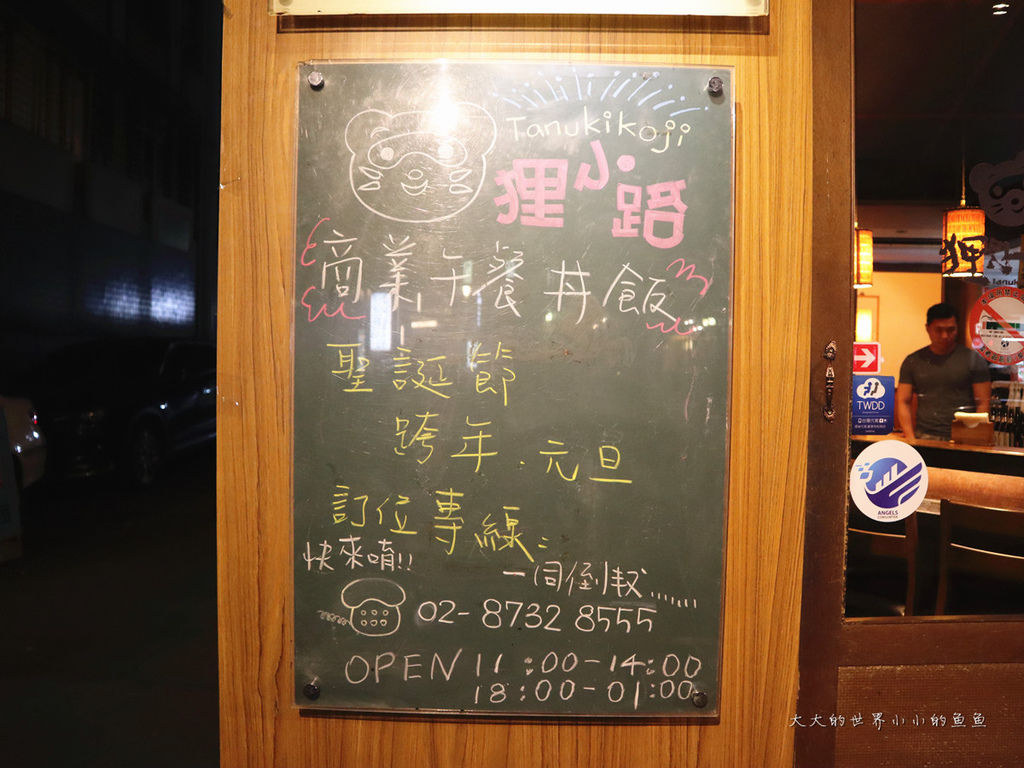 Tanukikoji
狸小路
商業午餐丼飯
聖誕節
跨年.元旦
訂位專線:
快來唷!!
一同倒數......
02-8732 8555
OPEN 11:00-14:00
18:00-01:00
狸
TWDD
ANGELS
大大的世界小小的鱼鱼